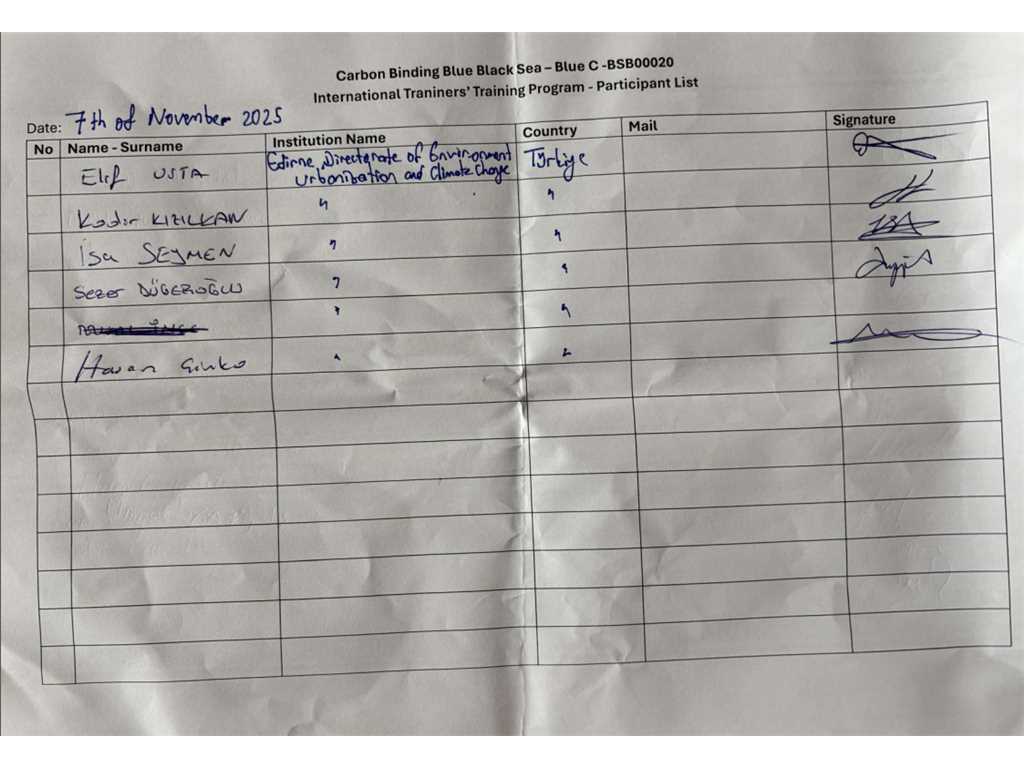 Carbon Binding Blue Black Sea – Blue C -BSB00020
International Traniners' Training Program - Participant List
Date: 7th of November 2025
No Name - Surname Institution Name Country Mail Signature
Elif USTA Edirne Directorate of Environment Türkiye
Urbanization and Climate Change
Kadir KIZILKAN " "
İsa SEYMEN " "
Sezer DÜGEROĞLU " "
" "
Hasan " "